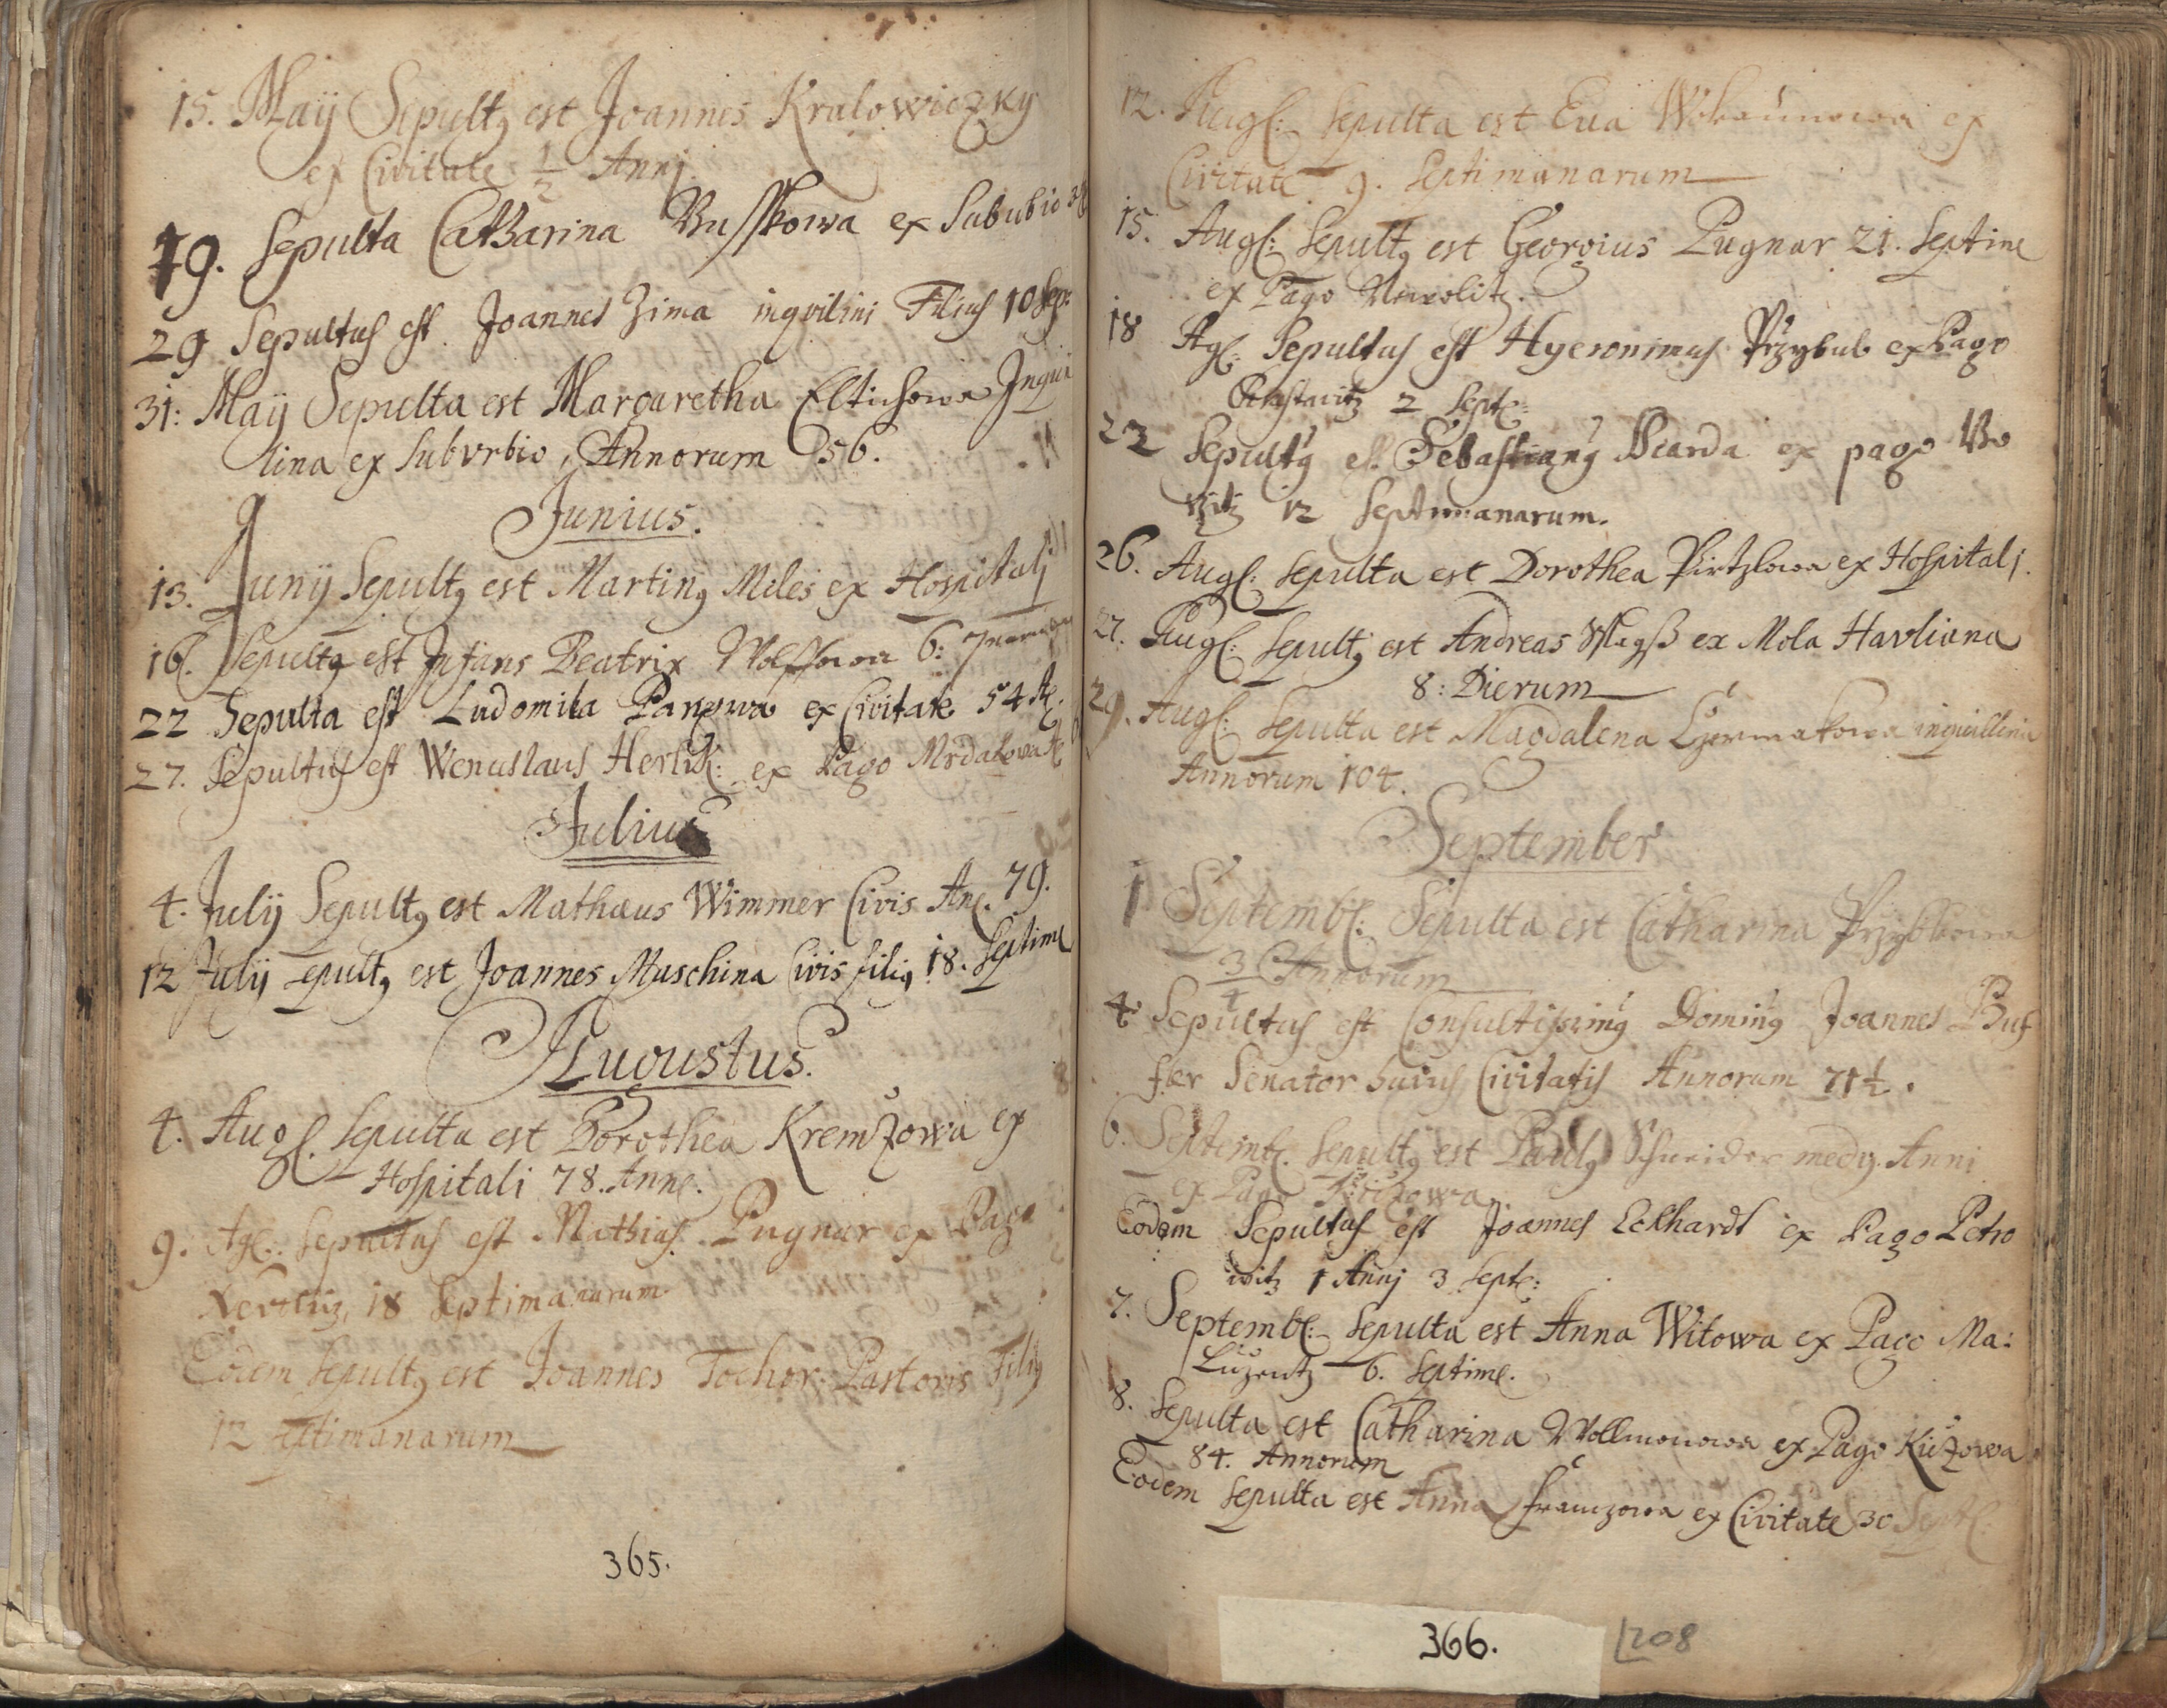 15. Maÿ Sepultꝰ est Joannes Kralowiczky
ex Civitate ½ Annj.
19. Sepulta Catharina ex Sububio
29 Sepultus est Joannes Zima inqvilini Filius 10 Sep:
31: Maÿ Sepulta est Margaretha Eltischowa Inqui
lina ex Subvrbio, Annorum 56.
Junius.
13. Junÿ Sepultꝰ est Martinꝰ Miles ex Hospitalj
16. Sepultꝰ est Infans Beatrix Wolffowa 6:
22 Sepulta est Ludomila Panzowa ex Civitate 54 A
27. Sepultus est Wenceslaus ex Pago
Julius
4. Julÿ Sepultꝰ est Mathæus Wimmer Civis An. 79.
12 Julÿ Sepultꝰ est Joannes Muschina Civis filiꝰ 18. Septim
Augustus.
4. Aug. Sepulta est Dorothea Kremzowa ex
Hospitali 78. Ann.
9. Ag: Sepultus est Mathias Pugnar ex Pago
18 Septimanarum
Eodem Sepultꝰ est Joannes Tochor Pastoris Filiꝰ
12 Septimanarum
365.
12. Aug: Sepulta est Eua Wokaunowa ex
Civitate 9. Septimanarum
15. Aug: Sepultꝰ est Georgius Pugnar 21. Septim
ex Pago
18 Ag: Sepultus est Hyeronimus Przybub ex Pago
2 Sept:
23 Sepultꝰ est Sebastianꝰ ex pago Bo
12 Septimanarum.
26. Aug: Sepulta est Dorothea Pirtzlowa ex Hospitalj.
27. Aug: Sepultꝰ est Andreas ex Mola Havliana
8: Dierum
29. Aug: Sepulta est Magdalena Czermakowa inquillina
Annorum 104.
September
1 Septemb: Sepulta est Catharina Przybkowa
¾ Annorum
4. Sepultus est Consultissimꝰ Dominꝰ Joannes Buf
fler Senator huius Civitatis Annorum 71½.
6. Septemb. Sepultꝰ est Paulꝰ Schneider medÿ. Anni
ex Pago
Eodem Sepultus est Joannes Eckhardt ex Pago Petro
witz 1 Annj 3 Sept:
7. Septemb: Sepulta est Anna Witowa ex Pago Ma:
6. Septim.
8. Sepulta est Catharina Wollmonowa ex Pago Kützowa
84. Annorum
Eodem Sepulta est Anna Franzowa ex Civitate 30 Sept:
366.
208